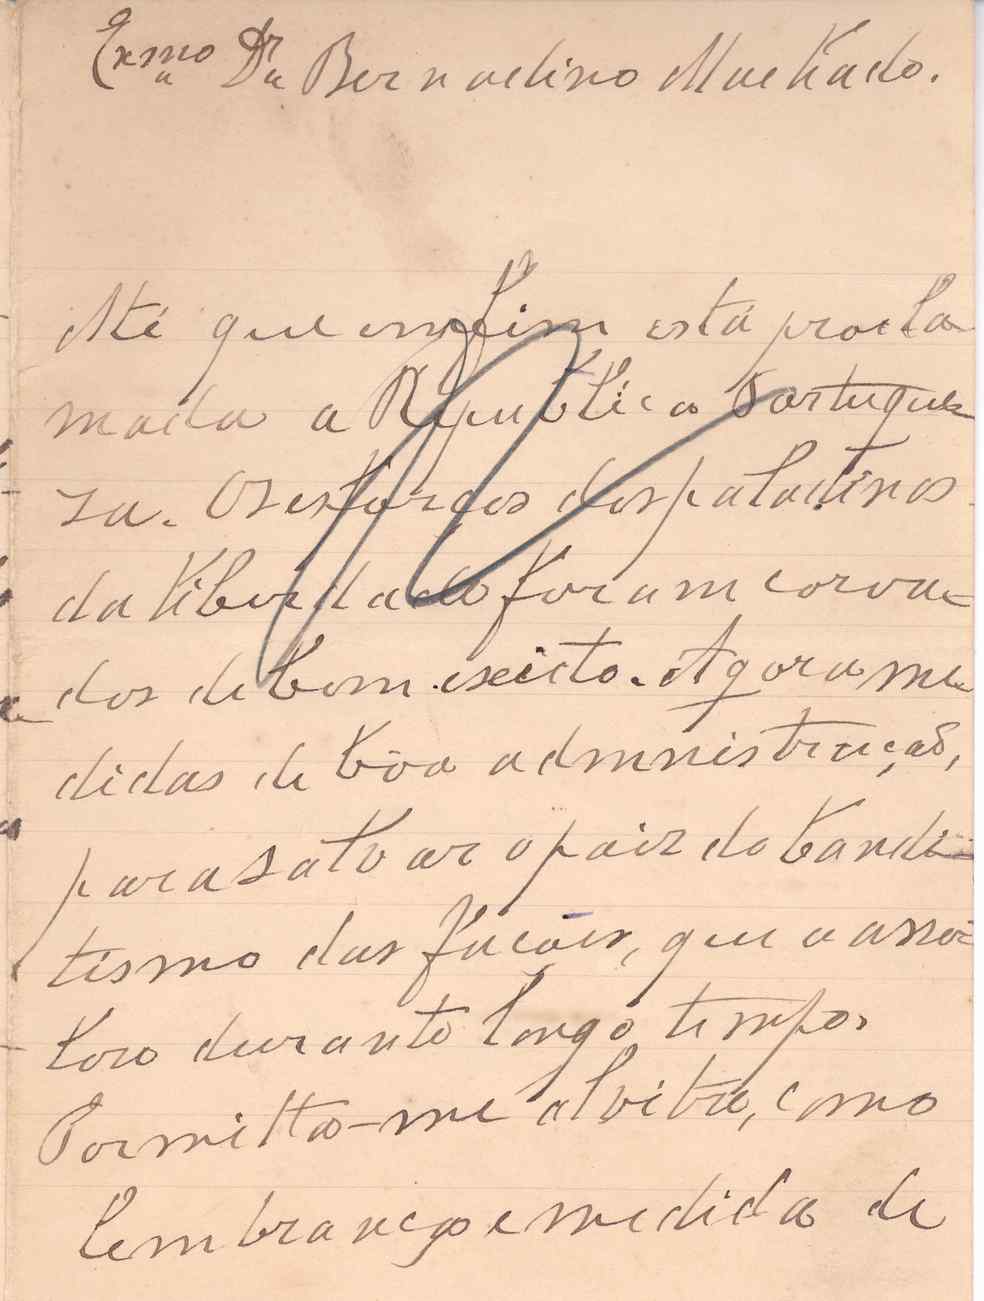 Exmo Dr Bernadino Machado.
Até que emfim está procla
mada a Republica Portugue
za. Os esforços dos paladinos
da liberdade foram coroa-
dos de bom exicto. Agora me
didas de bôa admnistração,
para salvar o paiz do bandi-
tismo das facões, que a asso-
lou durante longo tempo.
Permitta-me alvitra, como
lembrança e medida de